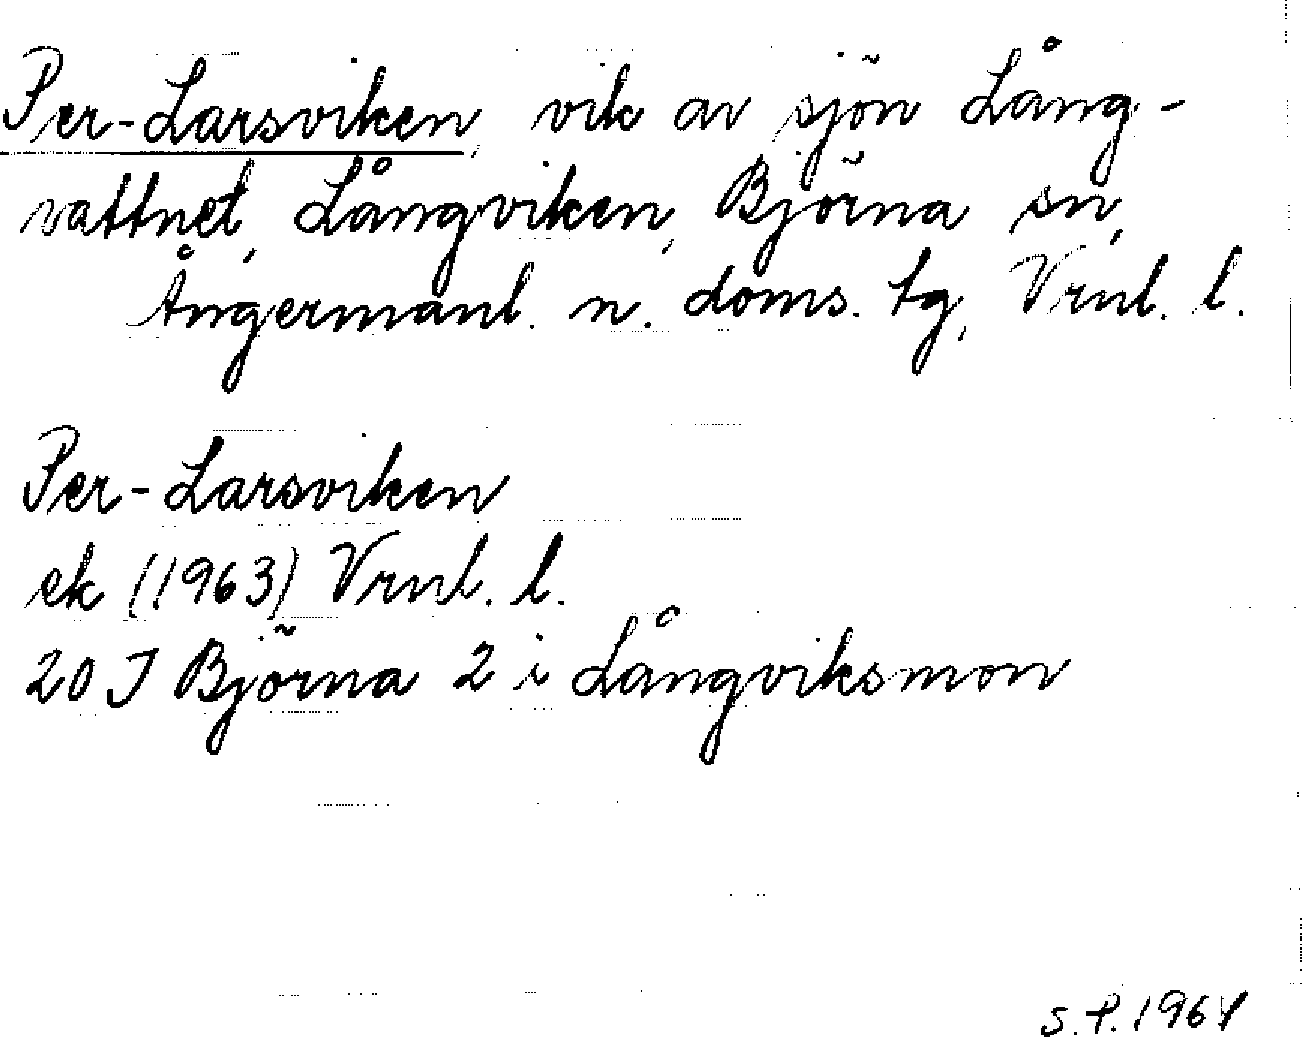 Per-Larsviken, vik av sjön Lång-
vattnet, Långviken, Björna sn,
Ångermanl. n. doms. tg, Vrnl. l.
Per-Larsviken
ek (1963) Vrnl. l.
20 J Björna 2 i Långviksmon
S.P. 1964